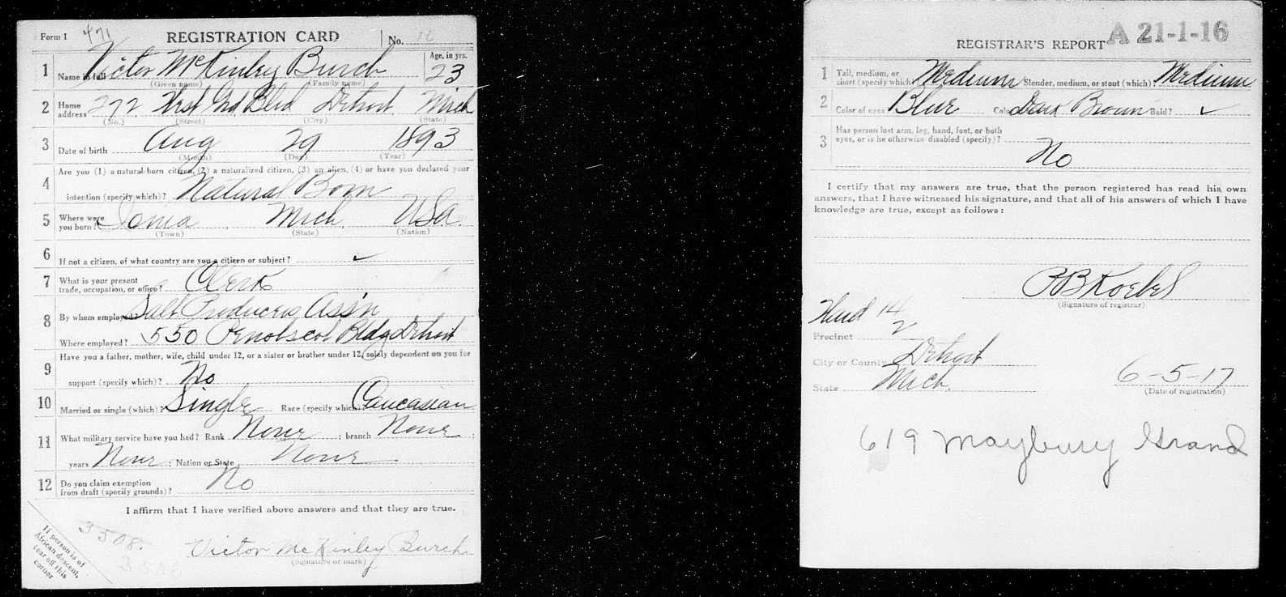 Form 1 471 REGISTRATION CARD No. 16
1 Name in full Victor McKinley Burch Age, in yrs. 23
(Given name) (Family name)
2 Home address 272 Grand Blvd Detroit Mich
(No.) (Street) (City) (State)
3 Date of birth Aug 29 1893
(Month) (Day) (Year)
Are you (1) a natural-born citizen, (2) a naturalized citizen, (3) an alien, (4) or have you declared your
4 intention (specify which)? Natural Born
5 Where were you born? Ionia Mich. USA.
(Town) (State) (Nation)
6 If not a citizen, of what country are you a citizen or subject? ✓
7 What is your present trade, occupation, or office? Clerk
8 By whom employed? Salt Producers Ass'n
Where employed? 550 Penobscot Bldg Detroit
Have you a father, mother, wife, child under 12, or a sister or brother under 12, solely dependent on you for
9 support (specify which)? No
10 Married or single (which)? Single Race (specify which)? Caucasian
11 What military service have you had? Rank None ; branch None ;
years None ; Nation or State None
12 Do you claim exemption from draft (specify grounds)? No
I affirm that I have verified above answers and that they are true.
3508.
3508
Victor McKinley Burch
(Signature or mark)
If person is of
African descent,
tear off this
corner
REGISTRAR'S REPORT A 21-1-16
1 Tall, medium, or short (specify which)? Medium Slender, medium, or stout (which)? Medium
2 Color of eyes? Blue Dark Brown Bald? ✓
3 Has person lost arm, leg, hand, foot, or both eyes, or is he otherwise disabled (specify)?
No
I certify that my answers are true, that the person registered has read his own
answers, that I have witnessed his signature, and that all of his answers of which I have
knowledge are true, except as follows:
(Signature of registrar)
14
2
Precinct
City or County Detroit
State Mich. 6-5-17
(Date of registration)
619 Maybury Grand